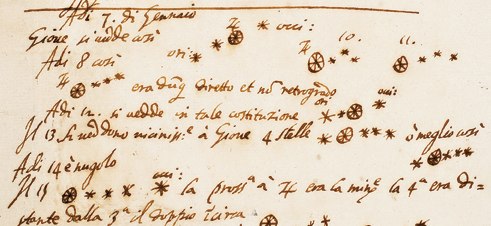 Adì 7. di Gennaio
Giove si vedde così
♃ * occi:
Adi 8 così
ori:
10. 11.
♃
era dunq. diretto et non retrogrado
Adi 12. si vedde in tale costituzione
ori occi:
Il 13 si veddono vicinissme à Giove 4 stelle
ò meglio così
Adi 14 è nugolo
Il 15
occi:
la pross.a à ♃ era la min.re la 4.a era di-
stante dalla 3.a il doppio circa